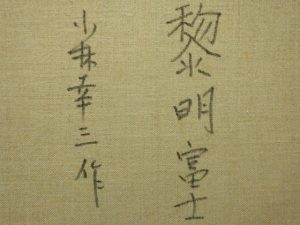 黎明富士
小林幸三作